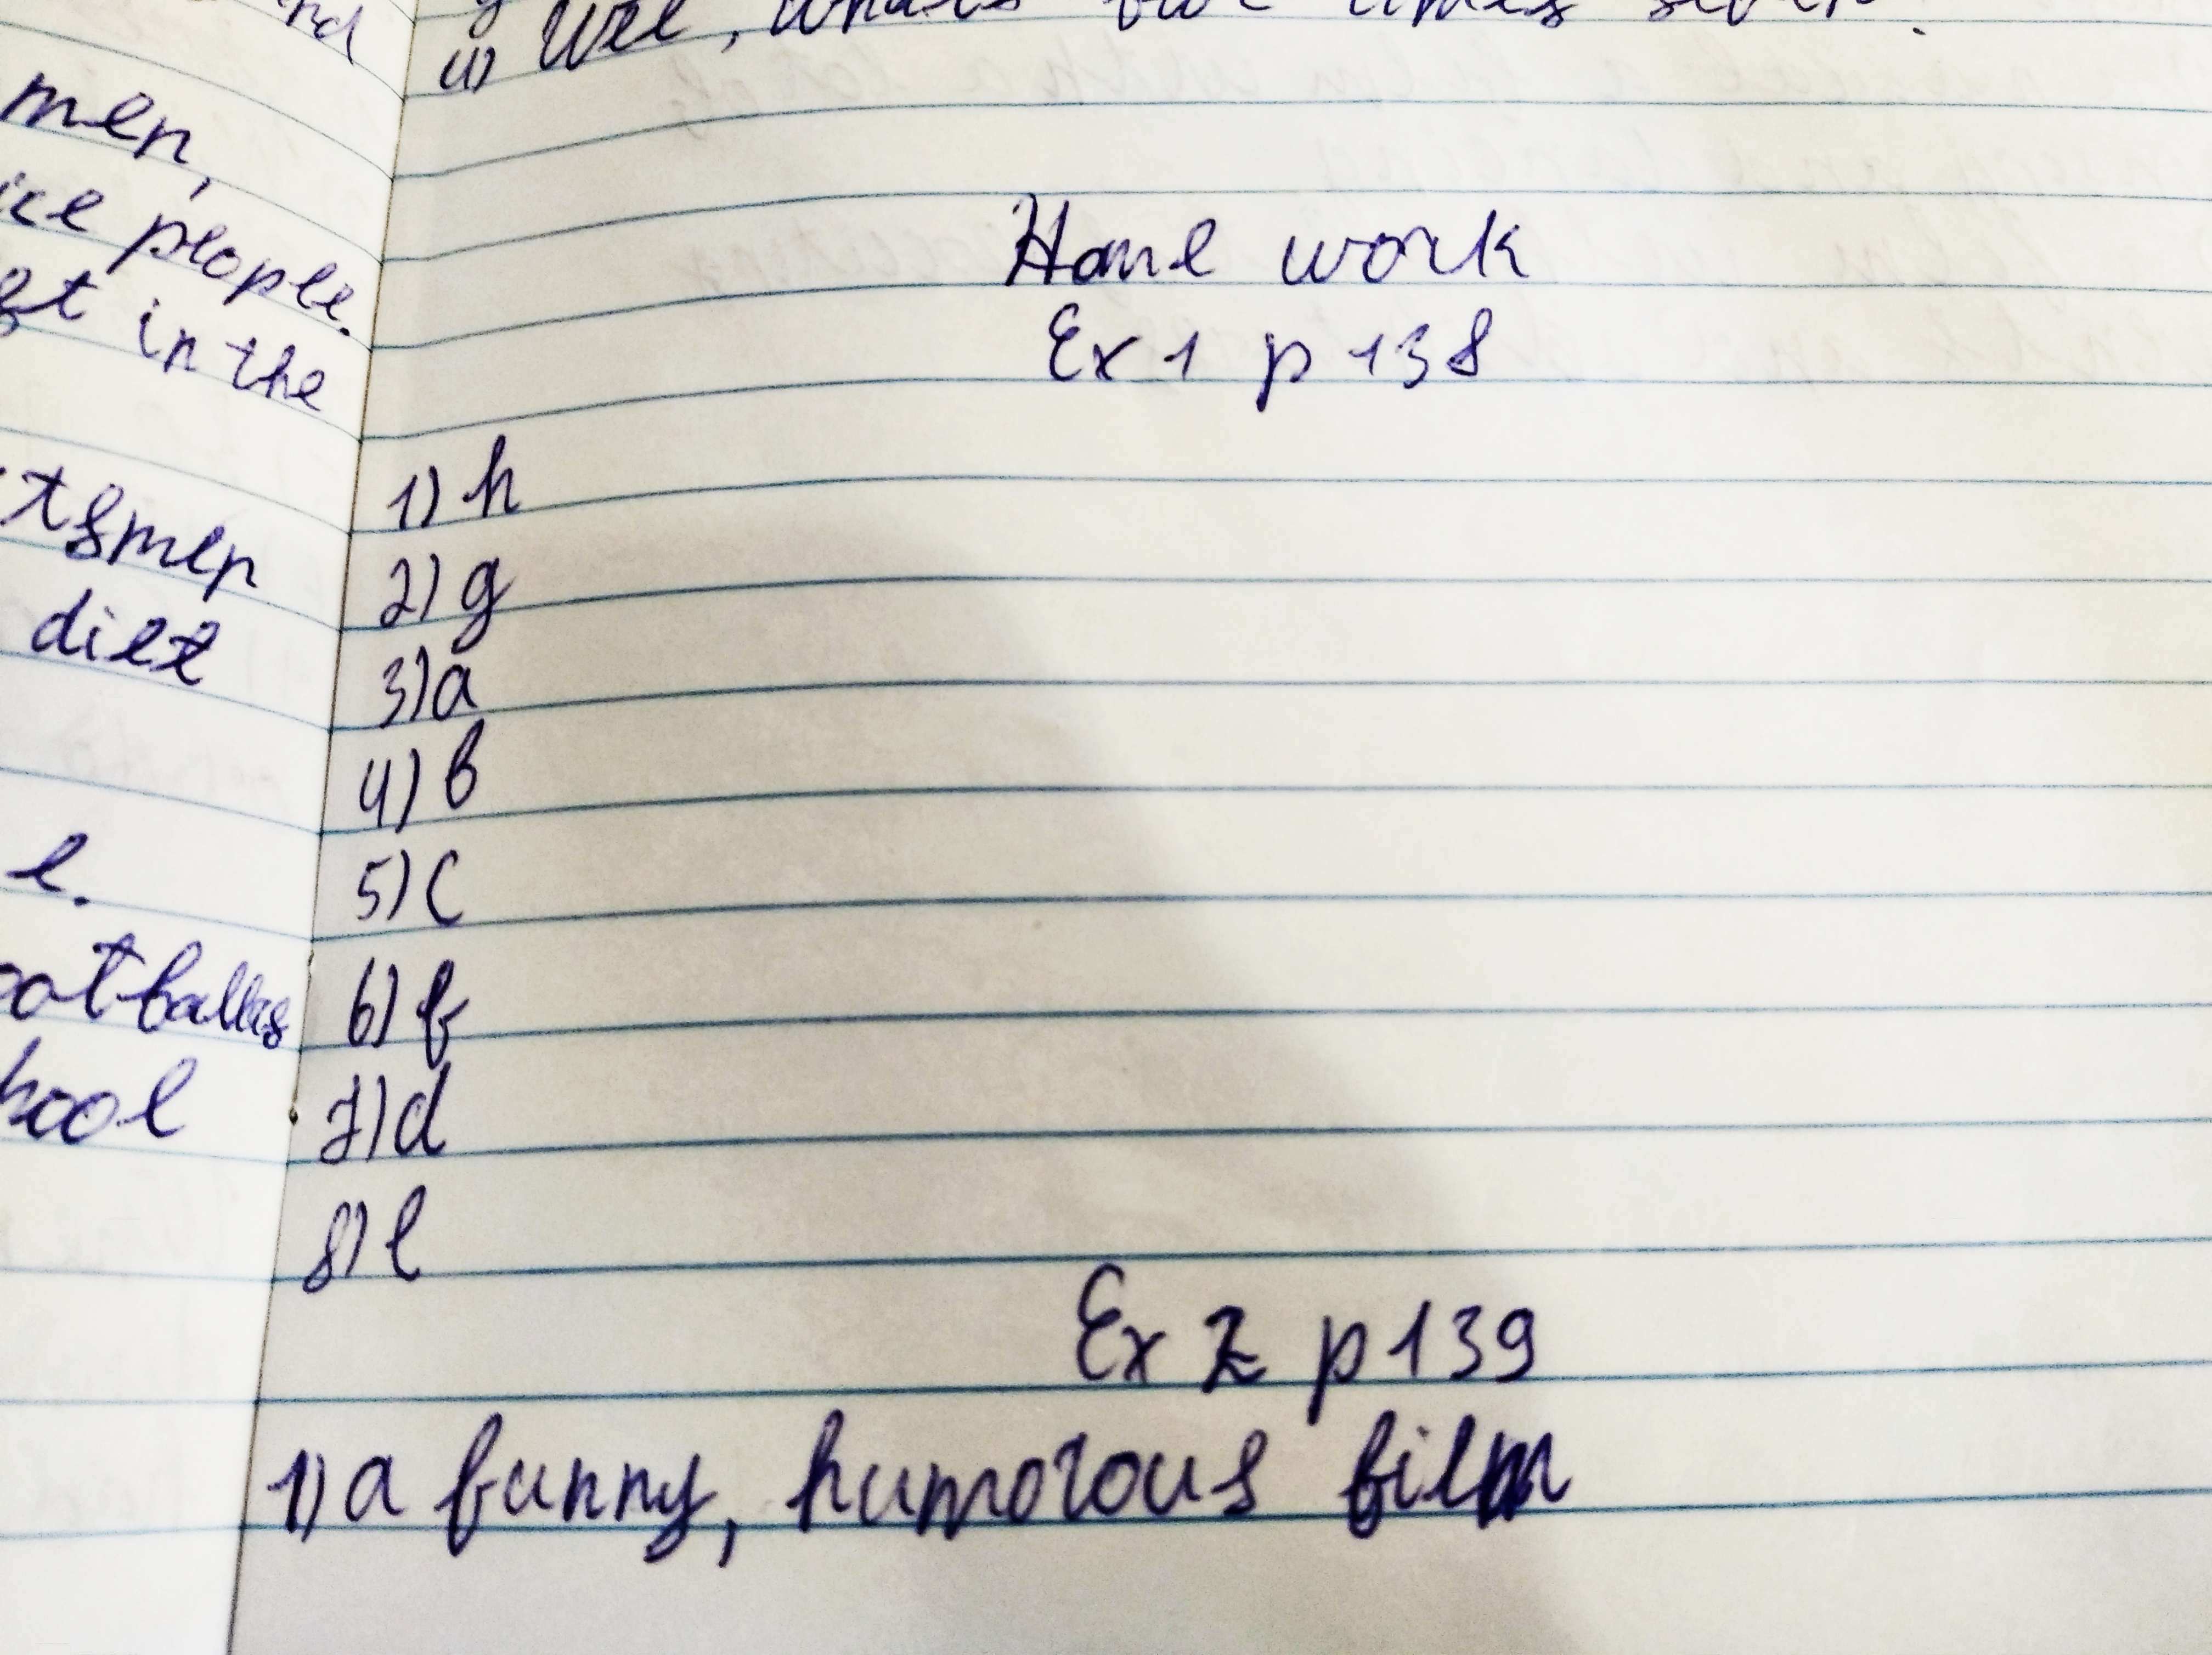 rd
men,
ice people.
st in the
tsmen
diet
e.
ootballes
hool
4) Wel, what's five times seven.
Home work
Ex 1 p 138
1) h
2) g
3) a
4) b
5) c
6) f
7) d
8) e
Ex 2 p 139
1) a funny, humorous film